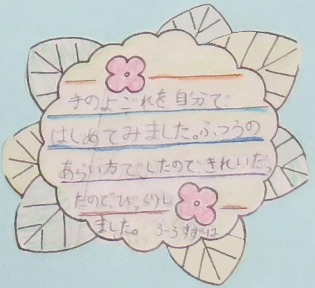 手のよごれを自分で、
はじめてみました。ふつうの
あらい方でしたので、きれいだっ
たので、びっくりし
ました。 3-3